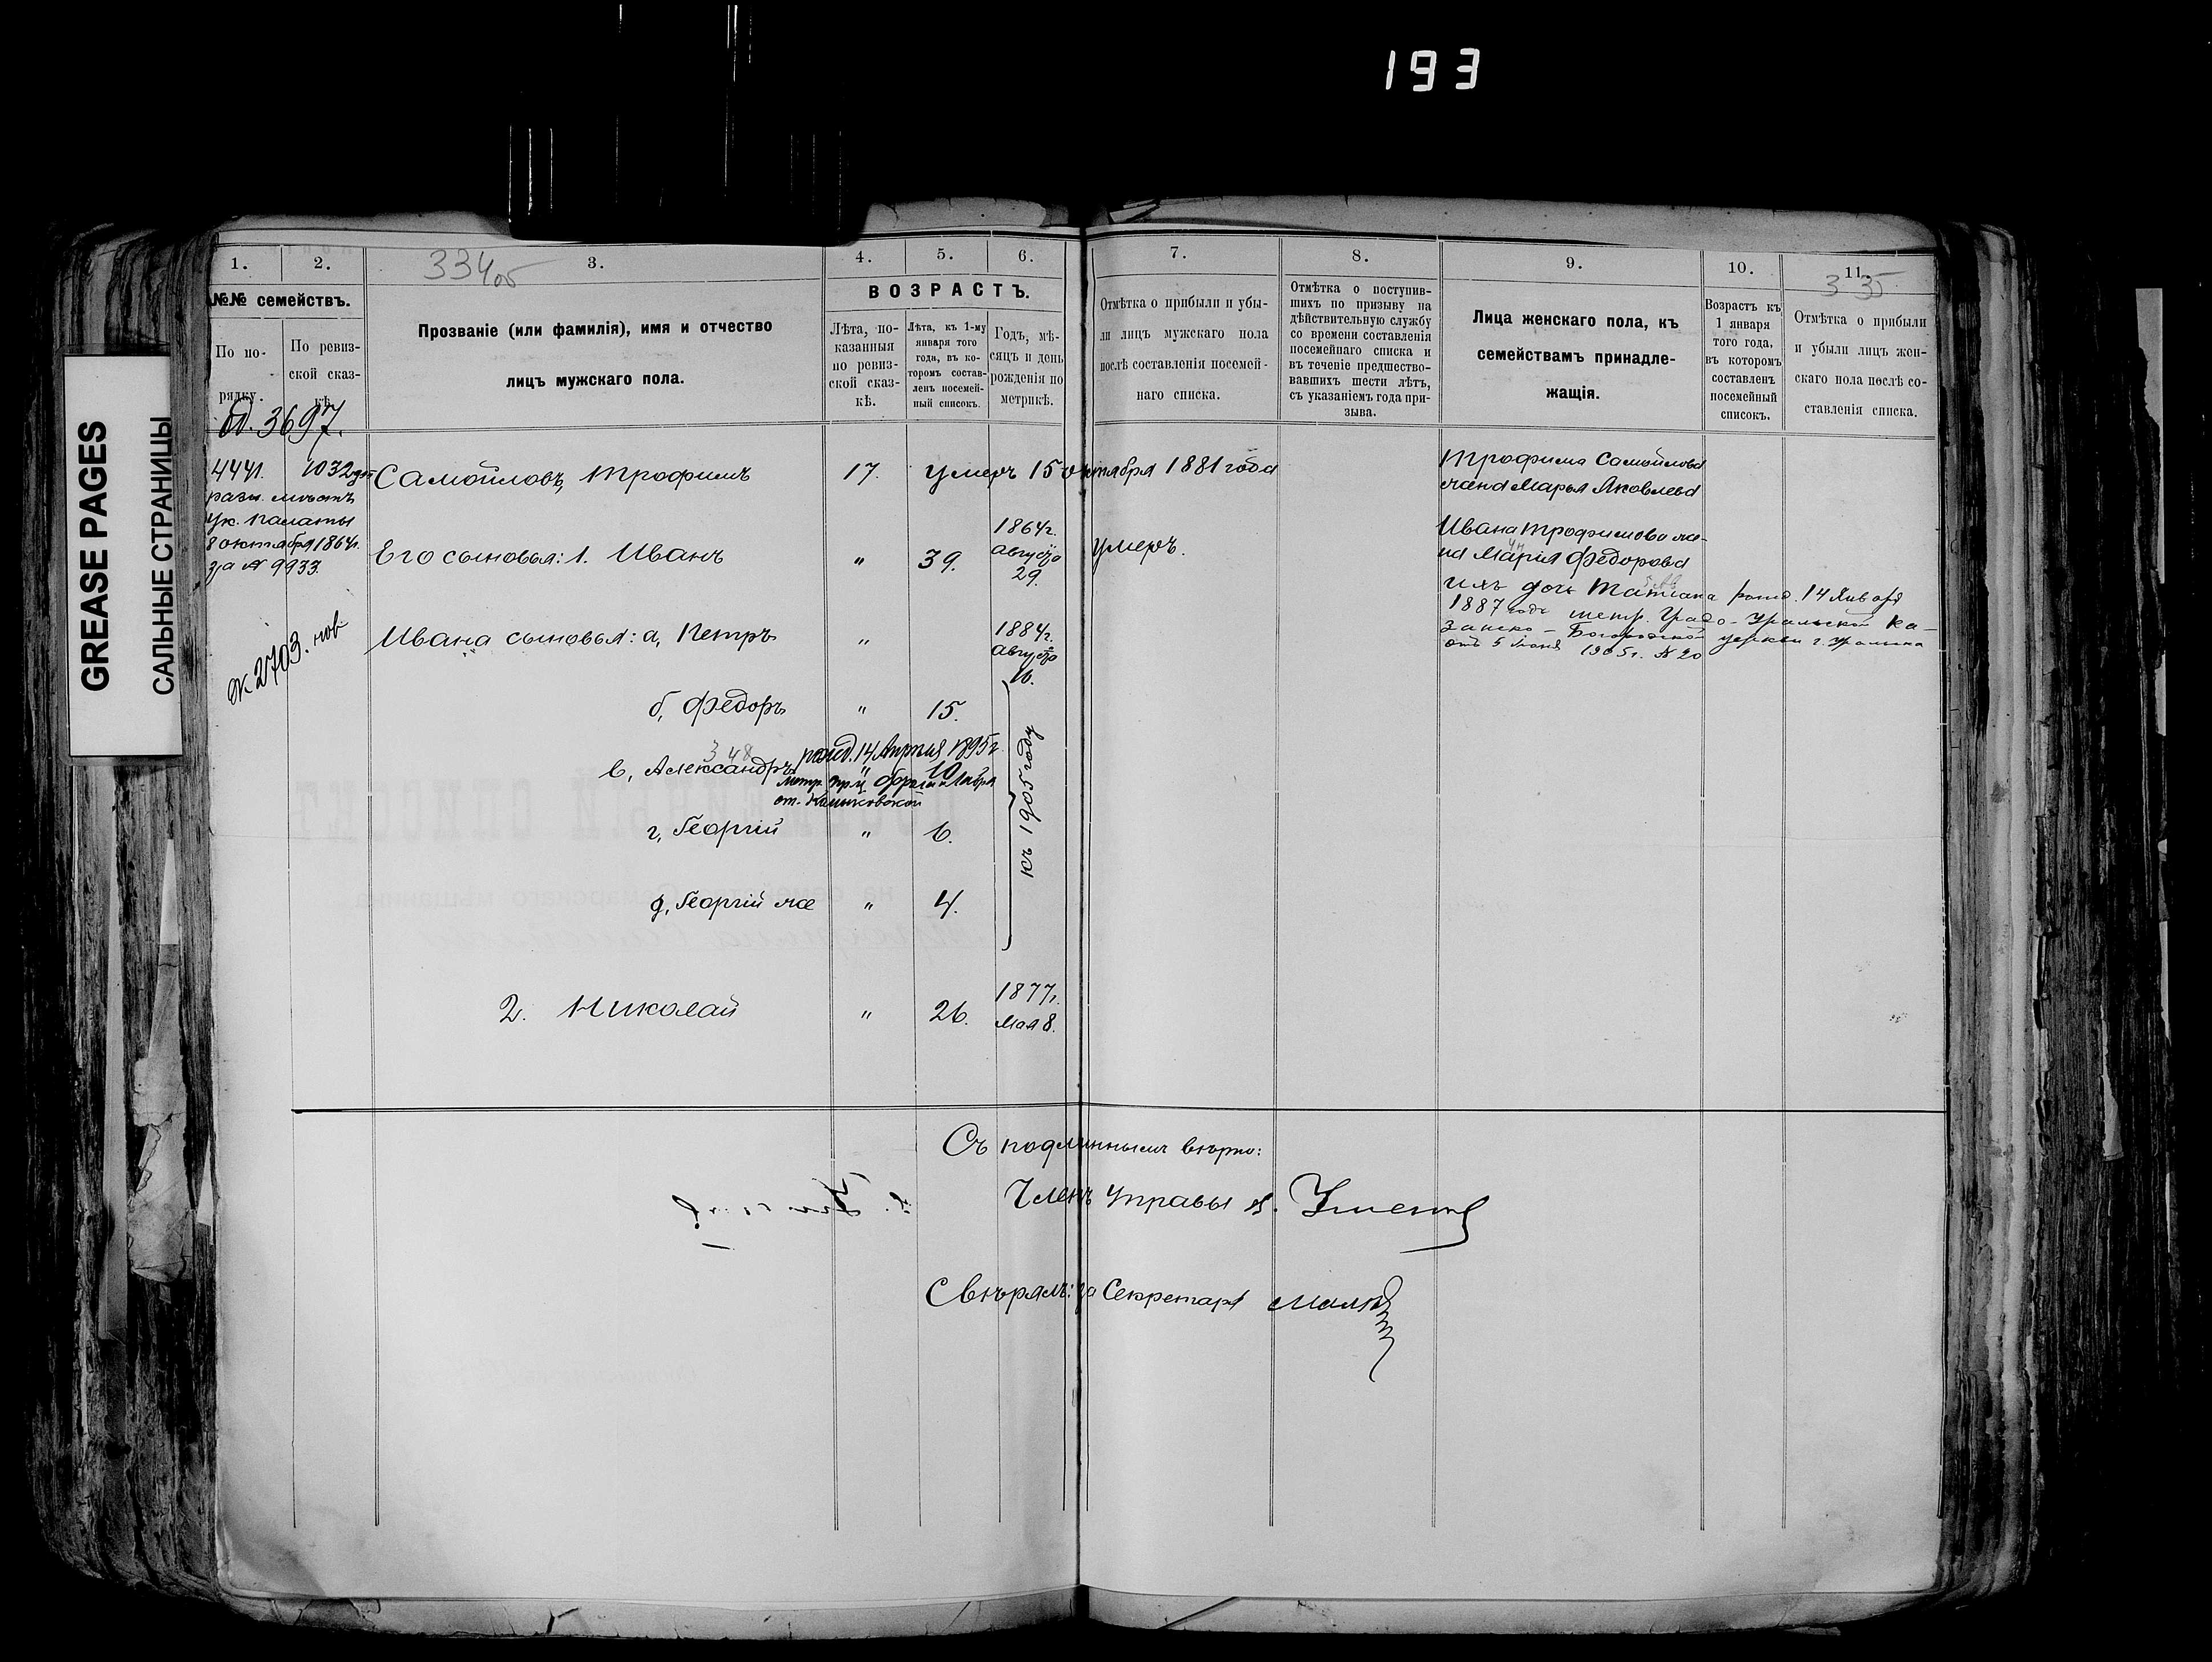 193
GREASE PAGES
САЛЬНЫЕ СТРАНИЦЫ
334об
335
1.
2.
3.
4.
5.
6.
7.
8.
9.
10.
11.
№№ семействъ.
По по-
рядку.
По ревиз-
ской сказ-
кѣ.
Прозваніе (или фамилія), имя и отчество
лицъ мужскаго пола.
ВОЗРАСТЪ.
Лѣта, по-
казанныя
по ревиз-
ской сказ-
кѣ.
Лѣта, къ 1-му
января того
года, въ ко-
торомъ состав-
ленъ посемей-
ный списокъ.
Годъ, мѣ-
сяцъ и день
рожденія по
метрикѣ.
Отмѣтка о прибыли и убы-
ли лицъ мужскаго пола
послѣ составленія посемей-
наго списка.
Отмѣтка о поступив-
шихъ по призыву на
дѣйствительную службу
со времени составленія
посемейнаго списка и
въ теченіе предшество-
вавшихъ шести лѣтъ,
съ указаніемъ года при-
зыва.
Лица женскаго пола, къ
семействамъ принадле-
жащія.
Возрастъ къ
1 января
того года,
въ которомъ
составленъ
посемейный
списокъ.
Отмѣтка о прибыли
и убыли лицъ жен-
скаго пола послѣ со-
ставленія списка.
3697.
4441. 1032
Ук. Палаты
8 октября 1864г.
за № 9933.
№ 2703. нов
Самойловъ, Трофимъ 17. умеръ 15 октября 1881 года
Трофима Самойлова
жена Марья Яковлева
Его сыновья: 1. Иванъ " 39. 1864г.
Августа
29.
умеръ.
Ивана Трофимова же-
на Марія Федорова
ихъ дочь Татіана рожд. 14 Января
1887 года метр. Градо-Уральской Ка-
занско-Богородской церкви г. Уральска
отъ 5 Іюня 1905г. № 20
Ивана сыновья: а, Петръ " 1884г.
Августа
16.
б, Федоръ " 15.
348
в, Александръ " 10
рожд. 14 Апрѣля 1895г.
г, Георгій " 6.
д, Георгій же " 4.
къ 1905 году
2. Николай " 26. 1877г.
Мая 8.
Съ подлиннымъ вѣрно:
Членъ Управы
Свѣрялъ: за Секретаря